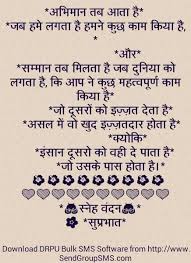 *अभिमान तब आता है*
*जब हमे लगता है हमने कुछ काम किया है,
*
*और*
*सम्मान तब मिलता है जब दुनिया को
लगता है, कि आप ने कुछ महत्वपूर्ण काम
किया है*
*जो दूसरों को इज़्ज़त देता है*
*असल में वो खुद इज़्ज़तदार होता है*
*क्योकि*
*इंसान दूसरो को वही दे पाता है*
*जो उसके पास होता है।*
*स्नेह वंदन*
*सुप्रभात*
Download DRPU Bulk SMS Software from http://www.
SendGroupSMS.com